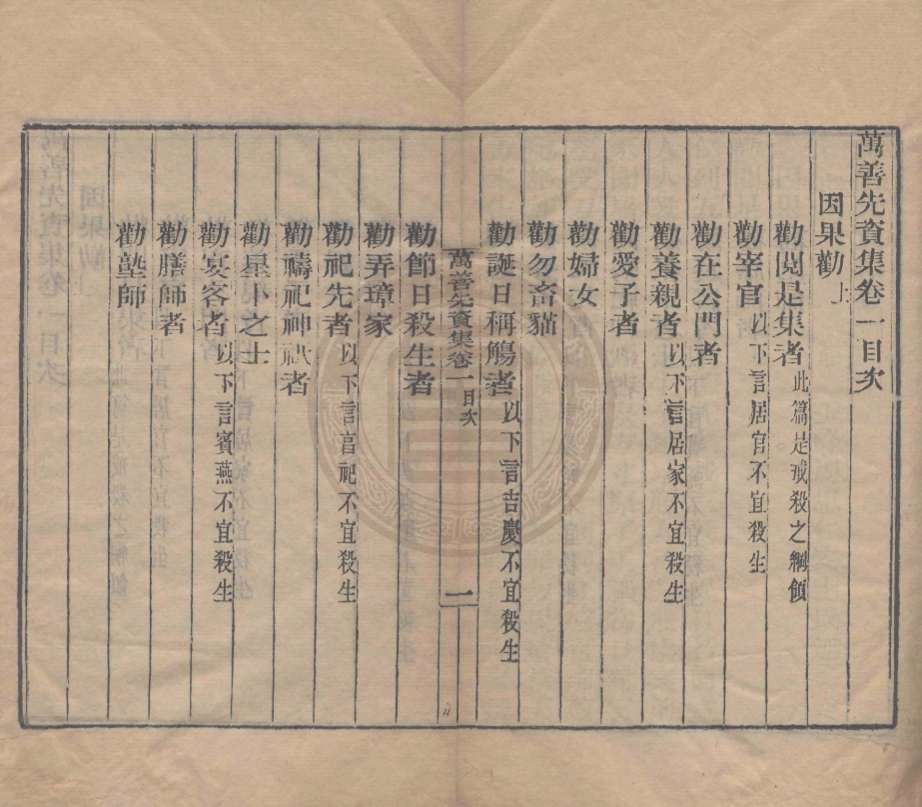 萬善先資集卷一目次
因果勸上
勸閱是集者 此篇是戒殺之綱領
勸宰官 以下言居官不宜殺生
勸在公門者
勸養親者 以下言居家不宜殺生
勸愛子者
勸婦女
勸勿畜貓
勸誕日稱觴者 以下言吉慶不宜殺生
萬善先資集卷一 目次 一
勸節日殺生者
勸弄璋家
勸祀先者 以下言言祀不宜殺生
勸禱祀神祇者
勸星卜之士
勸宴客者 以下言賓燕不宜殺生
勸膳師者
勸塾師